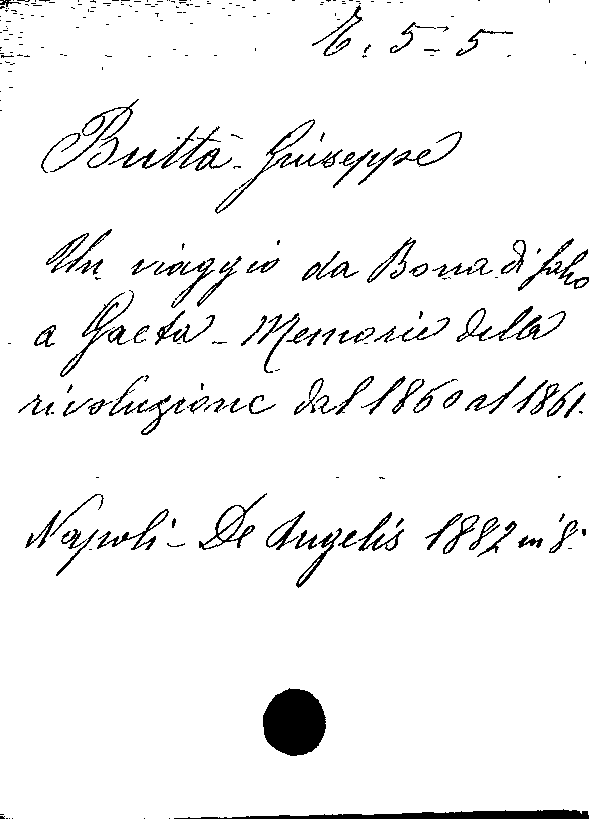 E. 5-5.
Buttà - Giuseppe
Un viaggio da Bocca di falco
a Gaeta - Memorie della
rivoluzione dal 1860 al 1861.
Napoli - De Angelis 1882 in 8.